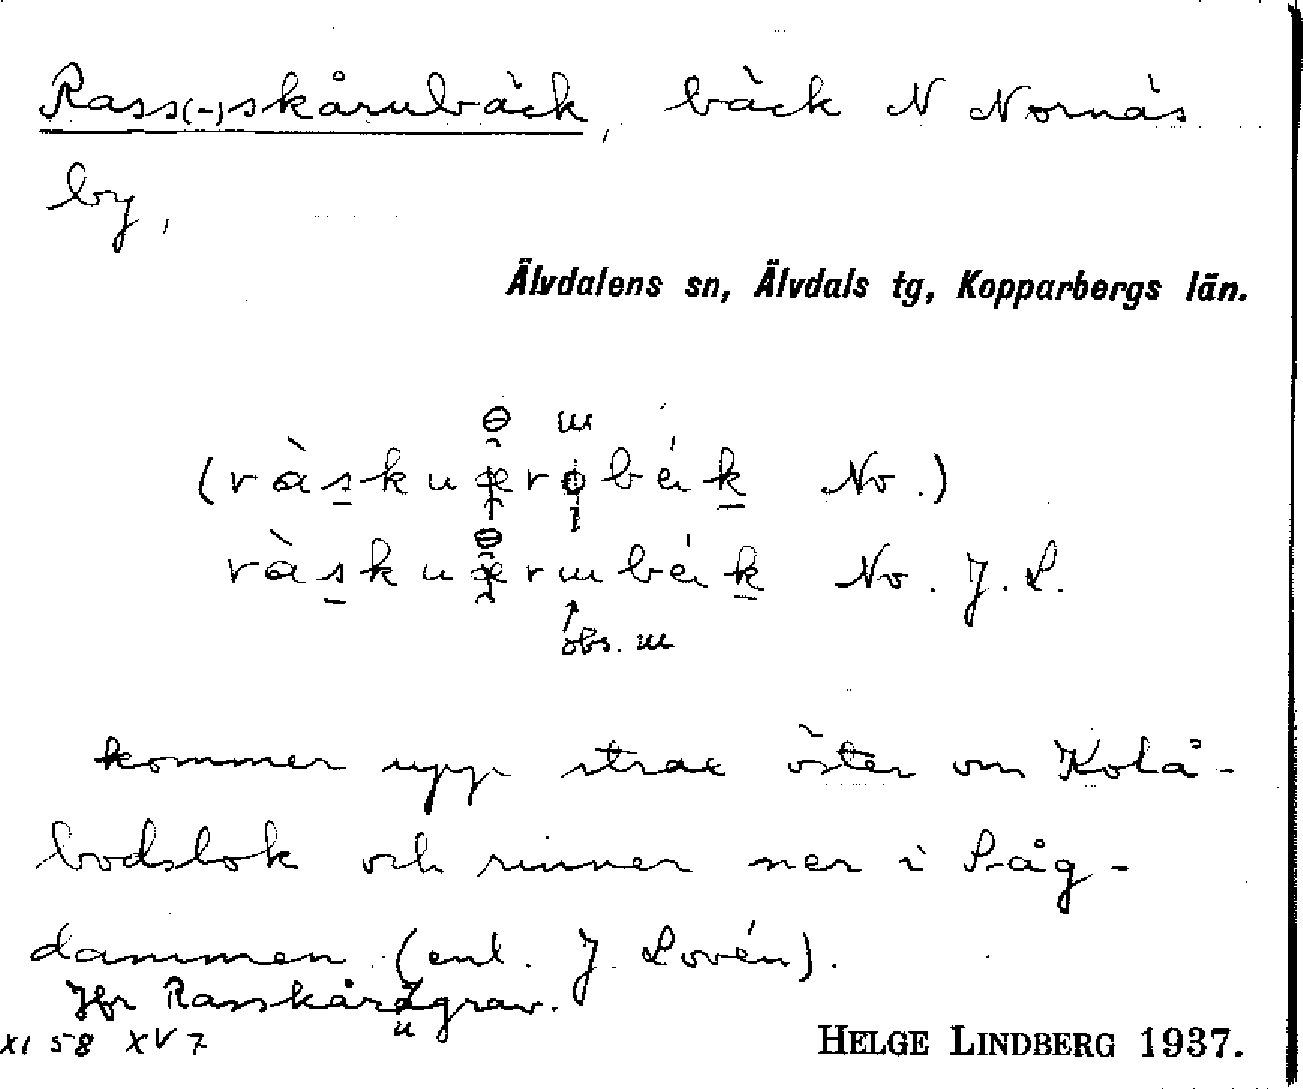 Rass(-)skårubäck, bäck N Nornäs
by,
Älvdalens sn, Älvdals tg, Kopparbergs län.
No.)
No. J. L.
obs. ɯ
kommer upp strax öster om Kolå-
bodslok och rinner ner i Såg-
dammen (enl. J. Lovén).
Jfr Rasskåragrav.
u
XI 58 XV 7
HELGE LINDBERG 1937.